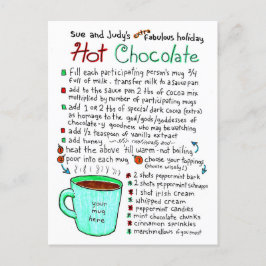 Sue and Judy's extra fabulous holiday
Hot Chocolate
Fill each participating person's mug 3/4
full of milk. transfer milk to a sauce pan
add to the sauce pan 2 tbs of cocoa mix
multiplied by number of participating mugs
add 1 or 2 tbs of special dark cocoa (extra)
as homage to the god/gods/goddesses of
chocolate-y goodness who may be watching
add ½ teaspoon of vanilla extract
add honey
heat the above till warm - not boiling
pour into each mug
choose your toppings
(choose wisely!)
2 shots peppermint bark
2 shots peppermint schnapps
1 shot irish cream
whipped cream
peppermint candies
mint chocolate chunks
cinnamon sprinkles
marshmallows if you must
your
mug
here